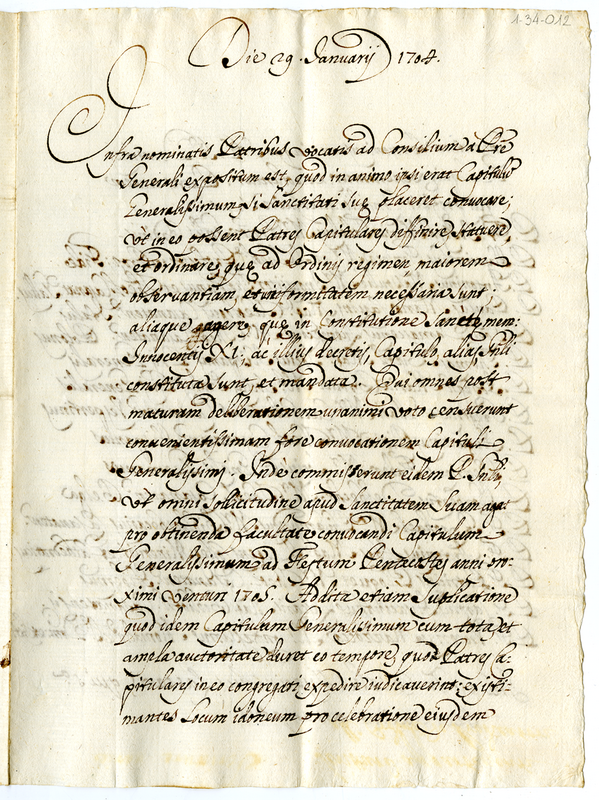 1-34-012
Die 29. Januarij 1704.
Infra nominatis Patribus vocatis ad Consilium a Pre
Generali expositum est, quod in animo ipsi erat Capitulũ
Generalissimum, si Sanctitati suę placeret convocare;
vt in eo possent Patres Capitulares diffinire, statuere,
et ordinare, quę ad Ordinis regimen, maiorem
observantiam, et uniformitatem necessaria sunt;
aliaque agere, quę in Constitutione Sanctę mem:
Innocentij XI; ac illius decretis, Capitulo, alias,
constituta sunt, et mandata. omnes post
maturam deliberationem unanimi voto censuerunt
convenientissimam fore convocationem Capituli
Generalissimi. Indè commisserunt eidem P.
vt omni sollicitudine apud Sanctitatem Suam agat
pro obtinenda facultate convocandi Capitulum
Generalissimum ad Festum Pentecostes anni pro-
ximi venturi 1705. Addita etiam Suplicatione
quod idem Capitulum Generalissimum cum tota, et
ampla auctoritate duret eo tempore, quod Patres Ca-
pitulares in eo congregati expedire iudicaverint: existi-
mantes Locum idoneum pro celebratione eiusdem